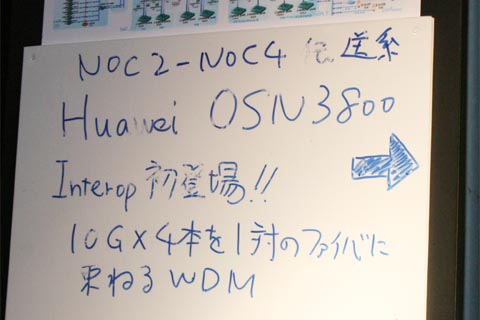 NOC2-NOC4 伝送系
Huawei OSN3800
Interop 初登場!!
10G×4本を1対のファイバに
束ねるWDM